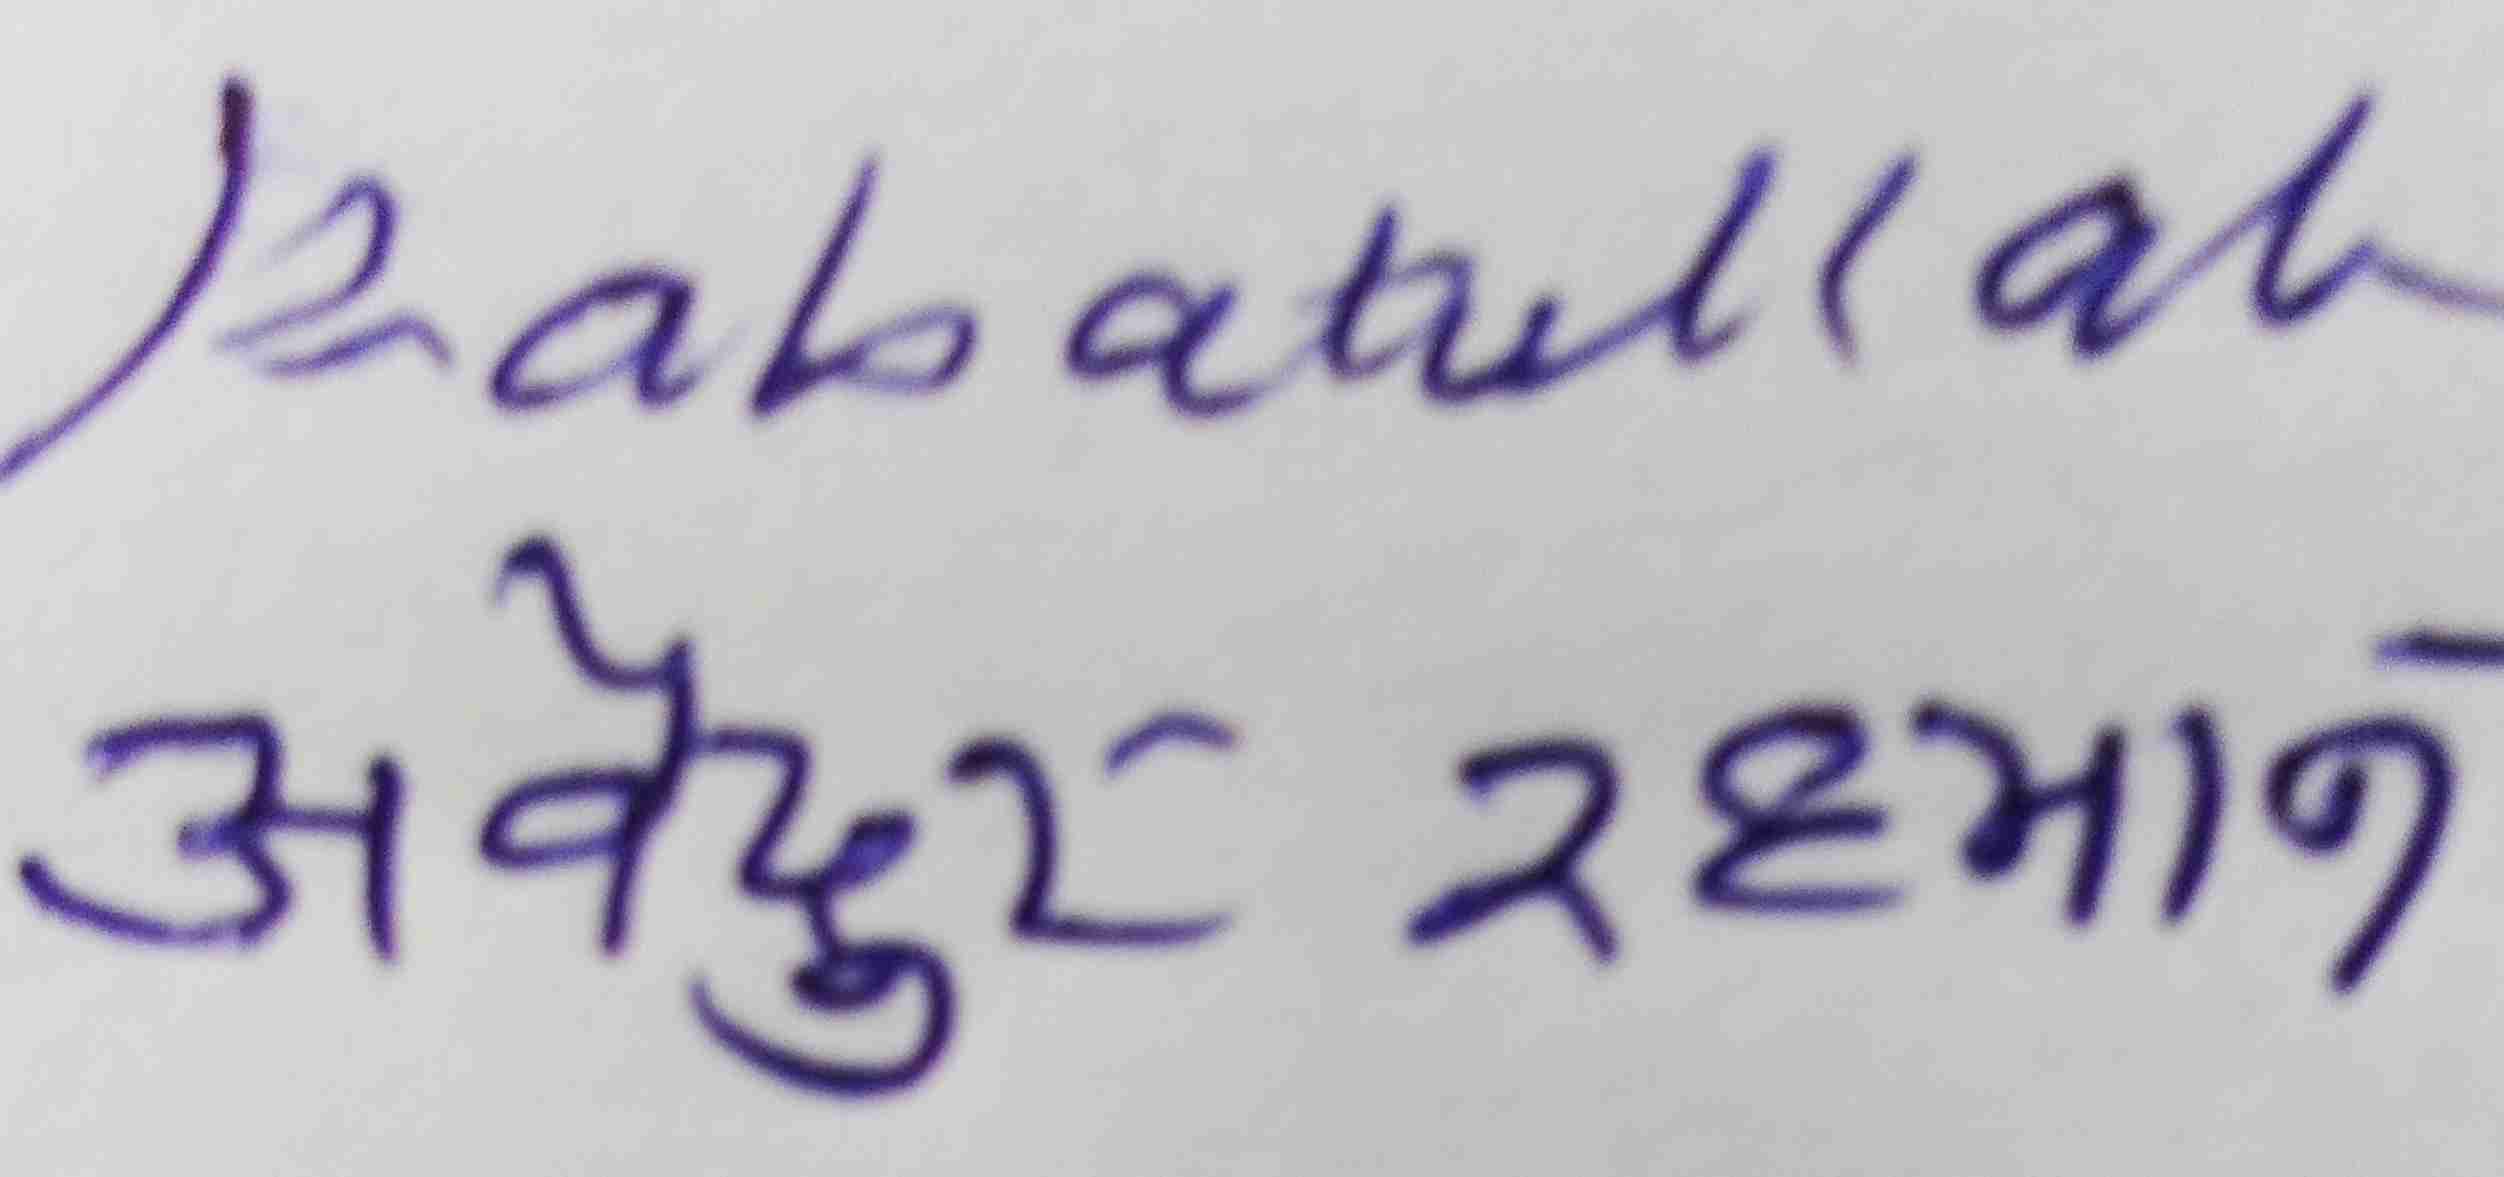 Kabatullah
अवेदुर रहमान